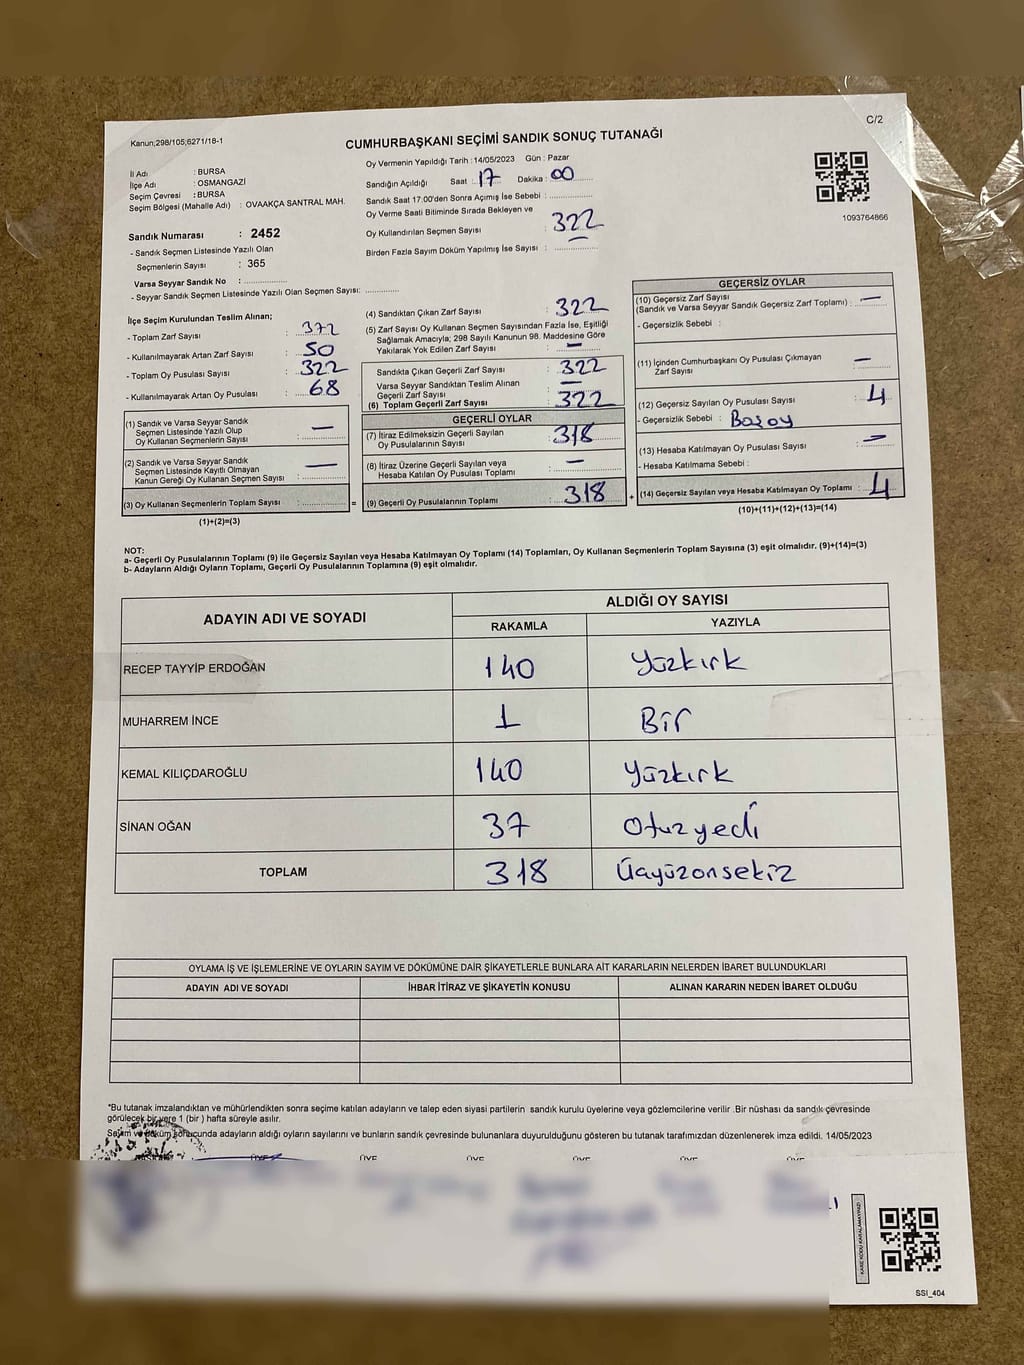 Kanun;298/105;6271/18-1
C/2
CUMHURBAŞKANI SEÇİMİ SANDIK SONUÇ TUTANAĞI
İl Adı : BURSA
İlçe Adı : OSMANGAZİ
Seçim Çevresi : BURSA
Seçim Bölgesi (Mahalle Adı) : OVAAKÇA SANTRAL MAH.
Sandık Numarası : 2452
- Sandık Seçmen Listesinde Yazılı Olan
Seçmenlerin Sayısı : 365
Varsa Seyyar Sandık No : ..............
- Seyyar Sandık Seçmen Listesinde Yazılı Olan Seçmen Sayısı: ............
Oy Vermenin Yapıldığı Tarih : 14/05/2023 Gün : Pazar
Sandığın Açıldığı Saat : 17 Dakika : 00
Sandık Saat 17.00'den Sonra Açımış İse Sebebi : ..............
Oy Verme Saati Bitiminde Sırada Bekleyen ve
Oy Kullandırılan Seçmen Sayısı : 322
Birden Fazla Sayım Döküm Yapılmış İse Sayısı : ..............
1093764866
İlçe Seçim Kurulundan Teslim Alınan;
- Toplam Zarf Sayısı : 372
- Kullanılmayarak Artan Zarf Sayısı : 50
- Toplam Oy Pusulası Sayısı : 322
- Kullanılmayarak Artan Oy Pusulası : 68
(1) Sandık ve Varsa Seyyar Sandık
Seçmen Listesinde Yazılı Olup
Oy Kullanan Seçmenlerin Sayısı : —
(2) Sandık ve Varsa Seyyar Sandık
Seçmen Listesinde Kayıtlı Olmayan
Kanun Gereği Oy Kullanan Seçmen Sayısı : —
(3) Oy Kullanan Seçmenlerin Toplam Sayısı : ..............
(1)+(2)=(3)
(4) Sandıktan Çıkan Zarf Sayısı : 322
(5) Zarf Sayısı Oy Kullanan Seçmen Sayısından Fazla İse, Eşitliği
Sağlamak Amacıyla; 298 Sayılı Kanunun 98. Maddesine Göre
Yakılarak Yok Edilen Zarf Sayısı : —
Sandıkta Çıkan Geçerli Zarf Sayısı : 322
Varsa Seyyar Sandıktan Teslim Alınan
Geçerli Zarf Sayısı : —
(6) Toplam Geçerli Zarf Sayısı : 322
GEÇERLİ OYLAR
(7) İtiraz Edilmeksizin Geçerli Sayılan
Oy Pusulalarının Sayısı : 318
(8) İtiraz Üzerine Geçerli Sayılan veya
Hesaba Katılan Oy Pusulası Toplamı : —
= (9) Geçerli Oy Pusulalarının Toplamı : 318
GEÇERSİZ OYLAR
(10) Geçersiz Zarf Sayısı
(Sandık ve Varsa Seyyar Sandık Geçersiz Zarf Toplamı) : —
- Geçersizlik Sebebi :
(11) İçinden Cumhurbaşkanı Oy Pusulası Çıkmayan
Zarf Sayısı : —
(12) Geçersiz Sayılan Oy Pusulası Sayısı : 4
- Geçersizlik Sebebi : Boş oy
(13) Hesaba Katılmayan Oy Pusulası Sayısı : —
- Hesaba Katılmama Sebebi :
+ (14) Geçersiz Sayılan veya Hesaba Katılmayan Oy Toplamı : 4
(10)+(11)+(12)+(13)=(14)
NOT:
a- Geçerli Oy Pusulalarının Toplamı (9) ile Geçersiz Sayılan veya Hesaba Katılmayan Oy Toplamı (14) Toplamları, Oy Kullanan Seçmenlerin Toplam Sayısına (3) eşit olmalıdır. (9)+(14)=(3)
b- Adayların Aldığı Oyların Toplamı, Geçerli Oy Pusulalarının Toplamına (9) eşit olmalıdır.
ADAYIN ADI VE SOYADI ALDIĞI OY SAYISI
RAKAMLA YAZIYLA
RECEP TAYYİP ERDOĞAN 140 Yüzkırk
MUHARREM İNCE 1 Bir
KEMAL KILIÇDAROĞLU 140 yüzkırk
SİNAN OĞAN 37 Otuzyedi
TOPLAM 318 Üçyüzonsekiz
OYLAMA İŞ VE İŞLEMLERİNE VE OYLARIN SAYIM VE DÖKÜMÜNE DAİR ŞİKAYETLERLE BUNLARA AİT KARARLARIN NELERDEN İBARET BULUNDUKLARI
ADAYIN ADI VE SOYADI İHBAR İTİRAZ VE ŞİKAYETİN KONUSU ALINAN KARARIN NEDEN İBARET OLDUĞU
*Bu tutanak imzalandıktan ve mühürlendikten sonra seçime katılan adayların ve talep eden siyasi partilerin sandık kurulu üyelerine veya gözlemcilerine verilir .Bir nüshası da sandık çevresinde
görülecek bir yere 1 (bir ) hafta süreyle asılır.
Sayım ve döküm sonucunda adayların aldığı oyların sayılarını ve bunların sandık çevresinde bulunanlara duyurulduğunu gösteren bu tutanak tarafımızdan düzenlenerek imza edildi. 14/05/2023
ÜYE ÜYE ÜYE ÜYE ÜYE
KARE KODU KARALAMAYINIZ!
SSI_404